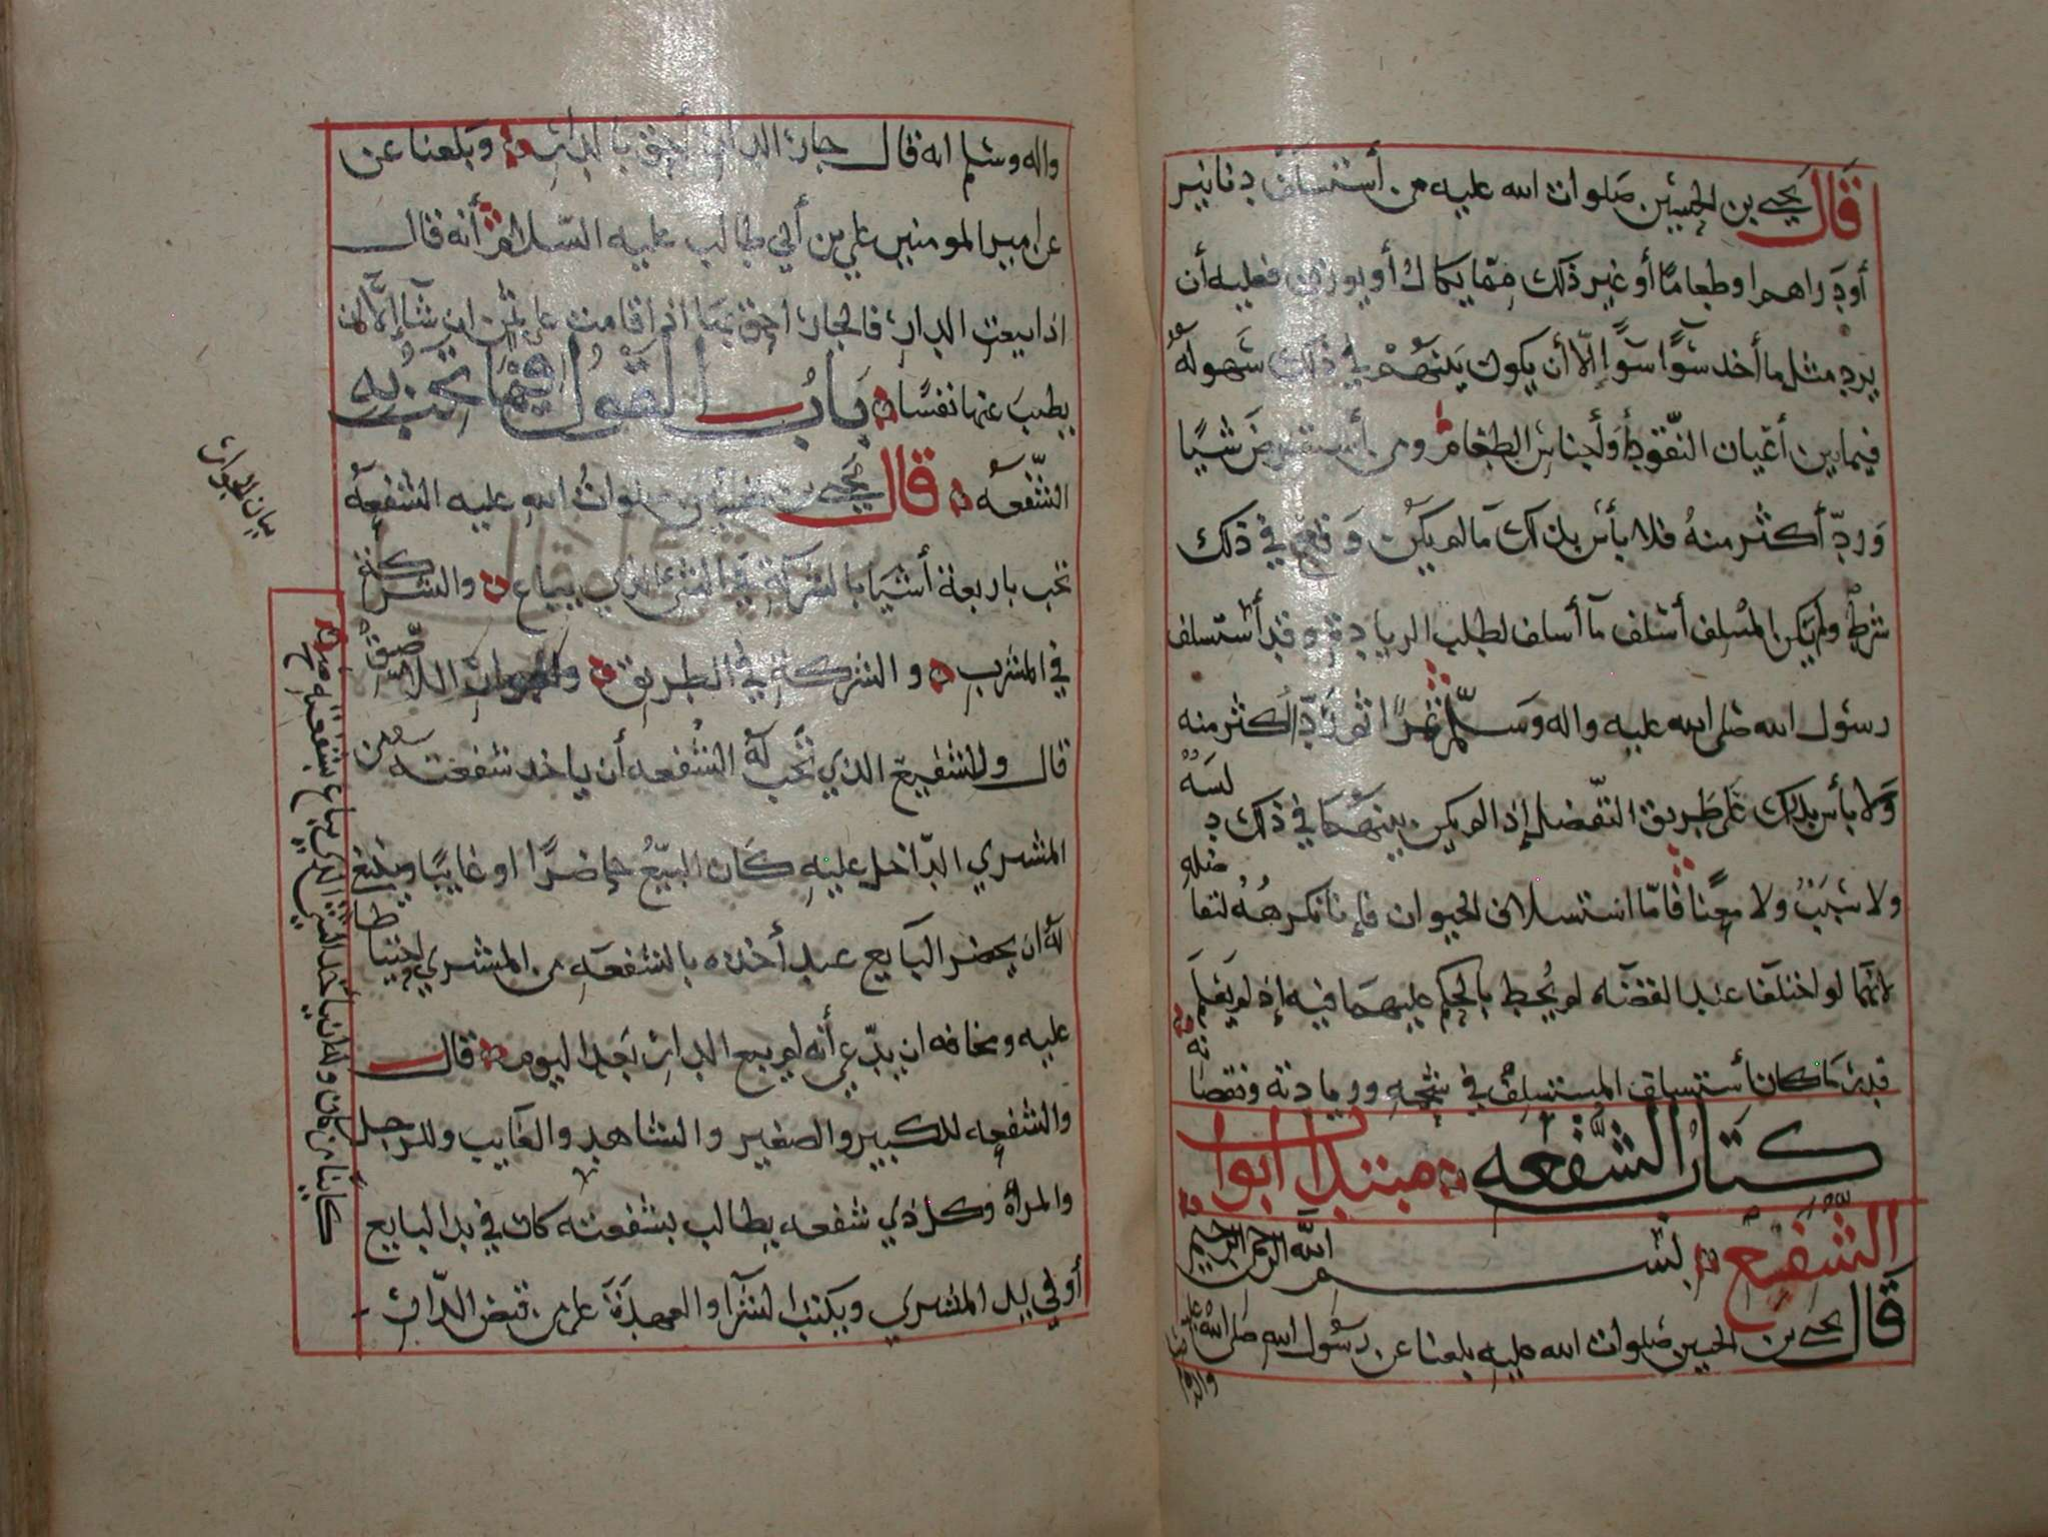 قال يحيى بن الحسين صلوات الله عليه من أستسلف دنانير
أودراهم اوطعاما أو غير ذلك مما يكال أو يوزن فعليه أن
يرد مثل ما أخد سوآ سوآ إلا أن يكون بينهم في ذلك سهوله
فيما بين أعيان النقود وأجناس الطعام ومن أستقرض شيا
ورد أكثر منه فلا بأس بذلك ما لم يكن وقع في ذلك
شرط ولم يكن المسلف أسلف مآ أسلف لطلب الزيادة وقد أستسلف
رسول الله صلى الله عليه واله وسلم ثم رد اكثر منه
ولا بأس بذلك على طريق التفضل إذا لم يكن بينهما في ذلك د لسه
ولا سبب ولا معنا فأما استسلاف الحيوان فإنا نكرهه لتفا ضله
لانهما لو اختلفا عند القضآ لم يحط بالحكم عليهما فيه إذ لم يعلم
قدر ما كان أستسلف المستسلف في شحمه وزيادته ونقصا نه
كتاب الشفعه مبتدا أبواب
الشفيع بسم الله الرحمن الرحيم
قال يحيى بن الحسين صلوات الله عليه بلغنا عن رسول الله صلى الله عليه
واله وسلم انه قال جار الدار أحق بالدار وبلغنا عن
عن امير المومنين علي بن أبي طالب عليه السلام أنه قال
اذا بيعت الدار فالجار أحق بها اذا قامت على ثمن ان شآ إلا أن
يطيب عنها نفسا باب القول فيما تجب به
الشفعه قال يحيى بن الحسين صلوات الله عليه الشفعه
تجب باربعة أشيا بالشركة في الشي الذي يباع والشركة
في المشرب والشركة في الطريق والجوار اللاصق
قال وللشفيع الذي تجب له الشفعه أن ياخد شفعته من
المشتري الداخل عليه كان البيع حاضرا او غايبا
له ان يحضر البايع عند أخذه بالشفعه من المشتري احتياطا
عليه ومخافه ان يدعي أنه لم يبع الدار بعد اليوم قال
والشفعه للكبير والصغير والشاهد والغايب وللرجل
والمرأة وكل ذي شفعه يطالب بشفعته كان في يد البايع
أو في يد المشتري ويكتب الشرآ والعهدة على من قبض الدار
بيان الجوار
وله ان ياخذ الشي الذي يباع بشفعته
كاينا من كان